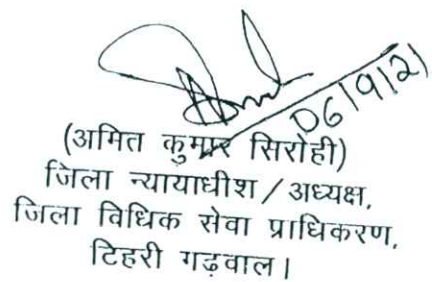 06/9/21
(अमित कुमार सिरोही)
जिला न्यायाधीश / अध्यक्ष,
जिला विधिक सेवा प्राधिकरण,
टिहरी गढ़वाल।